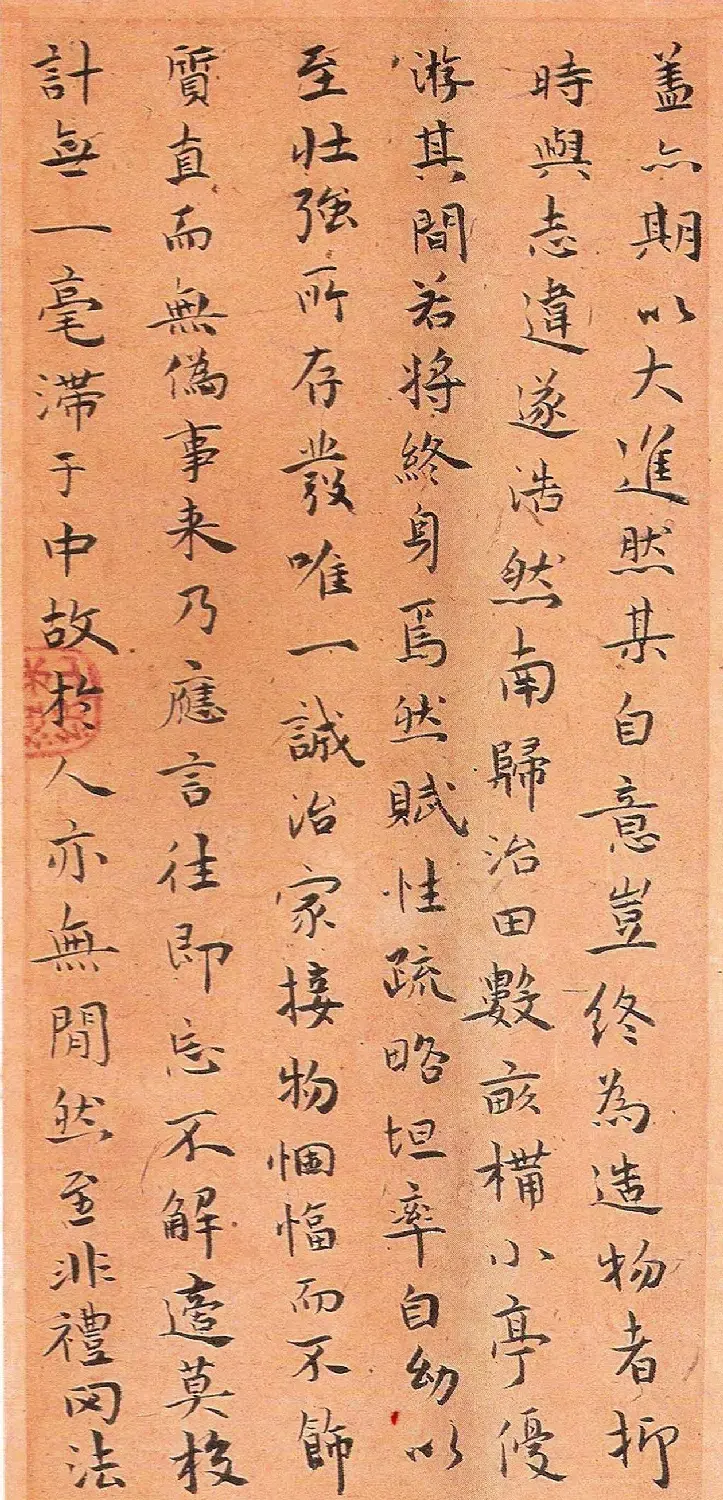 盖亦期以大進然某自意豈終為造物者抑
時與志違遂浩然南歸治田數畝構小亭優
游其間若将終身焉然賦性疏略坦率自幼以
至壮強所存發唯一誠治家接物悃愊而不飾
質直而無偽事来乃應言往即忘不解莫校
計無一毫滞于中故於人亦無閒然至非禮罔法